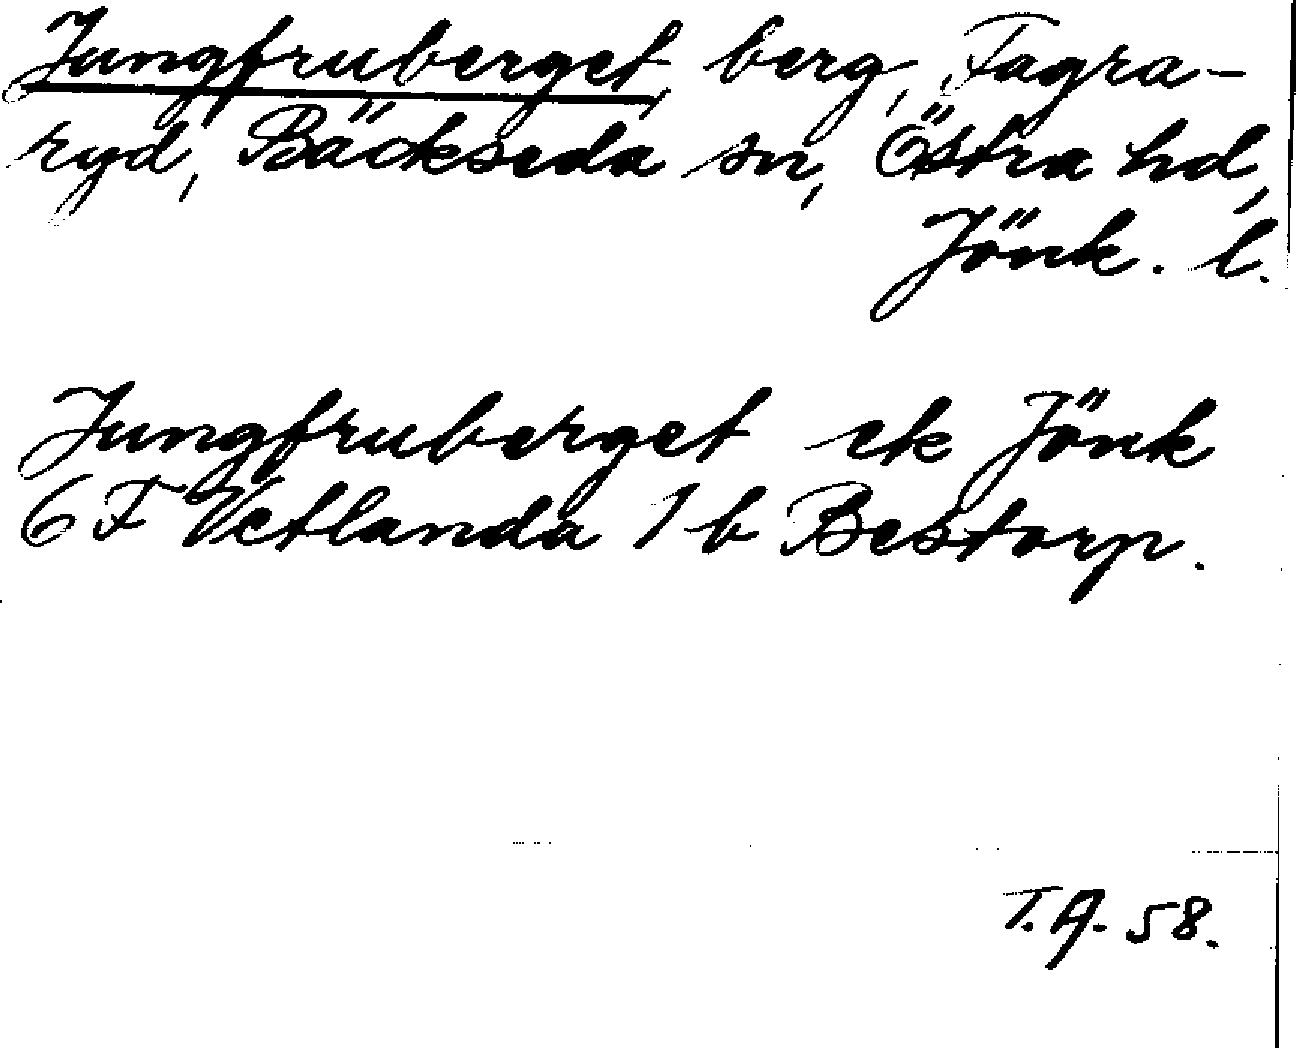 Jungfruberget, berg, Fagra-
ryd, Bäckseda sn, Östra hd,
Jönk. l.
Jungfruberget ek Jönk
6 F Vetlanda 1 b Bestorp.
T.A. 58.